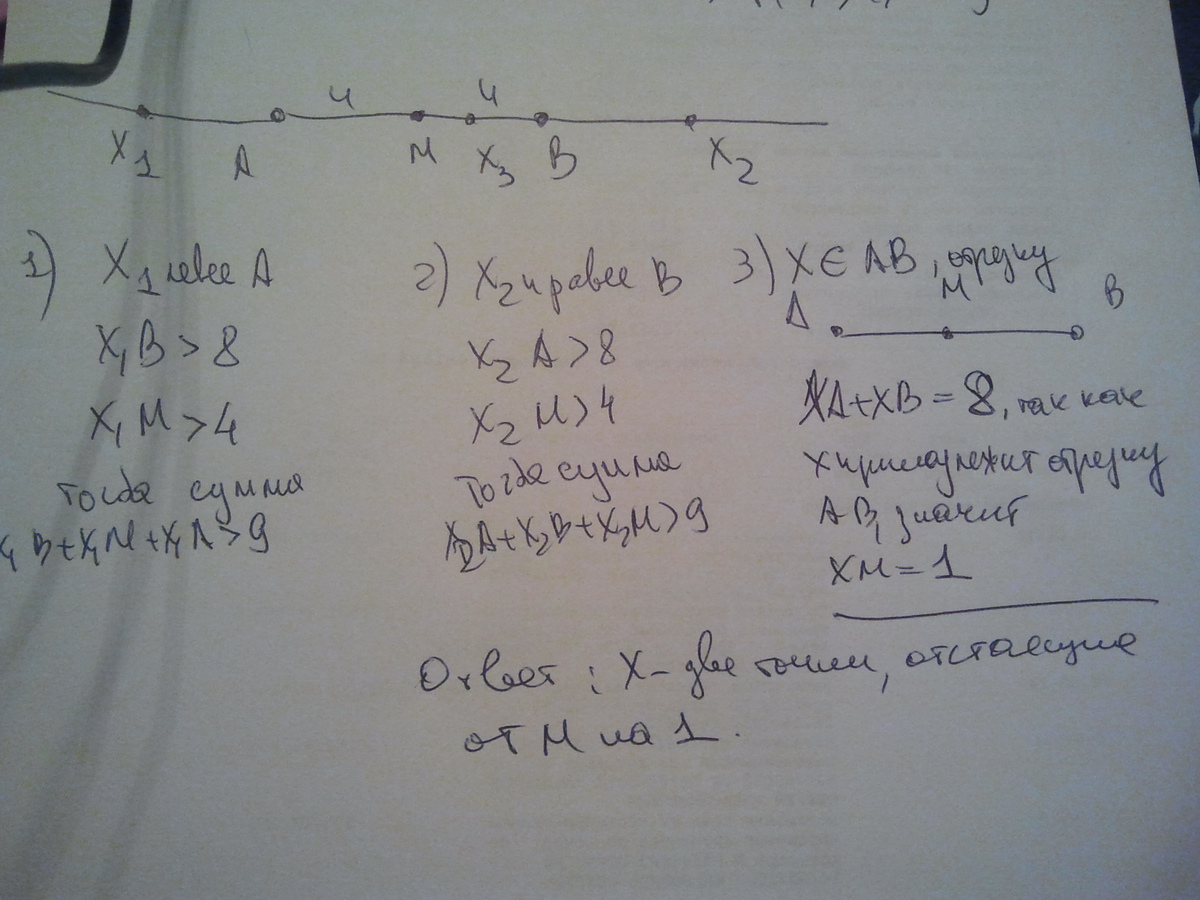 4 4
X1 A M X3 B X2
1) X1 левее A
X1B > 8
X1M > 4
тогда сумма
X1B+X1M+X1A>9
2) X2 правее B
X2 A > 8
X2 M > 4
Тогда сумма
X2A+X2B+X2M>9
3) X ∈ AB, отрезку
A M B
XA+XB = 8, так как
X принадлежит отрезку
AB, значит
XM = 1
Ответ: X - две точки, отстающие
от M на 1.